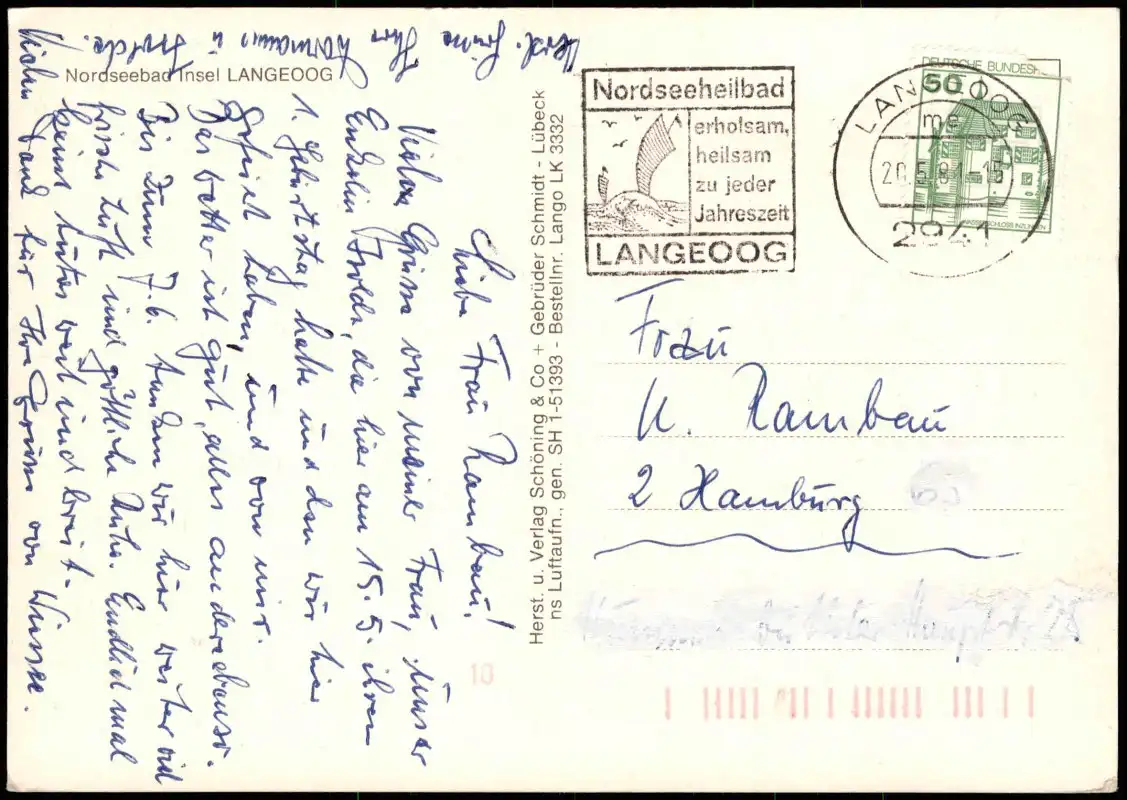 Nordseebad Insel LANGEOOG
Liebe Frau Rambau!
Viele Grüsse von meiner Frau, unser
Enkelin Isolde, die hier am 15.5. ihren
1. Geburtstag hatte und den wir hier
gefeiert haben, und von mir.
Das Wetter ist gut, alles andere ebenso.
Bis zum 7.6. tanken wir hier weiter
frische Luft und göttliche Ruhe. Endlich mal
keine weit und breit.
Vielen Dank für Ihre Grüsse von Wiessee.
Herzl. Grüße
Ihre u
Isolde.
Herst. u. Verlag Schöning & Co + Gebrüder Schmidt - Lübeck
ns Luftaufn., gen. SH 1-51393 - Bestellnr. Lango LK 3332
Nordseeheilbad
erholsam,
heilsam
zu jeder
Jahreszeit
LANGEOOG
DEUTSCHE BUNDESP
50
LANGEOOG
me
20.5.81-15
2941
WASSERSCHLOSS INZLINGEN
Frau
U. Rambau
2 Hamburg
10